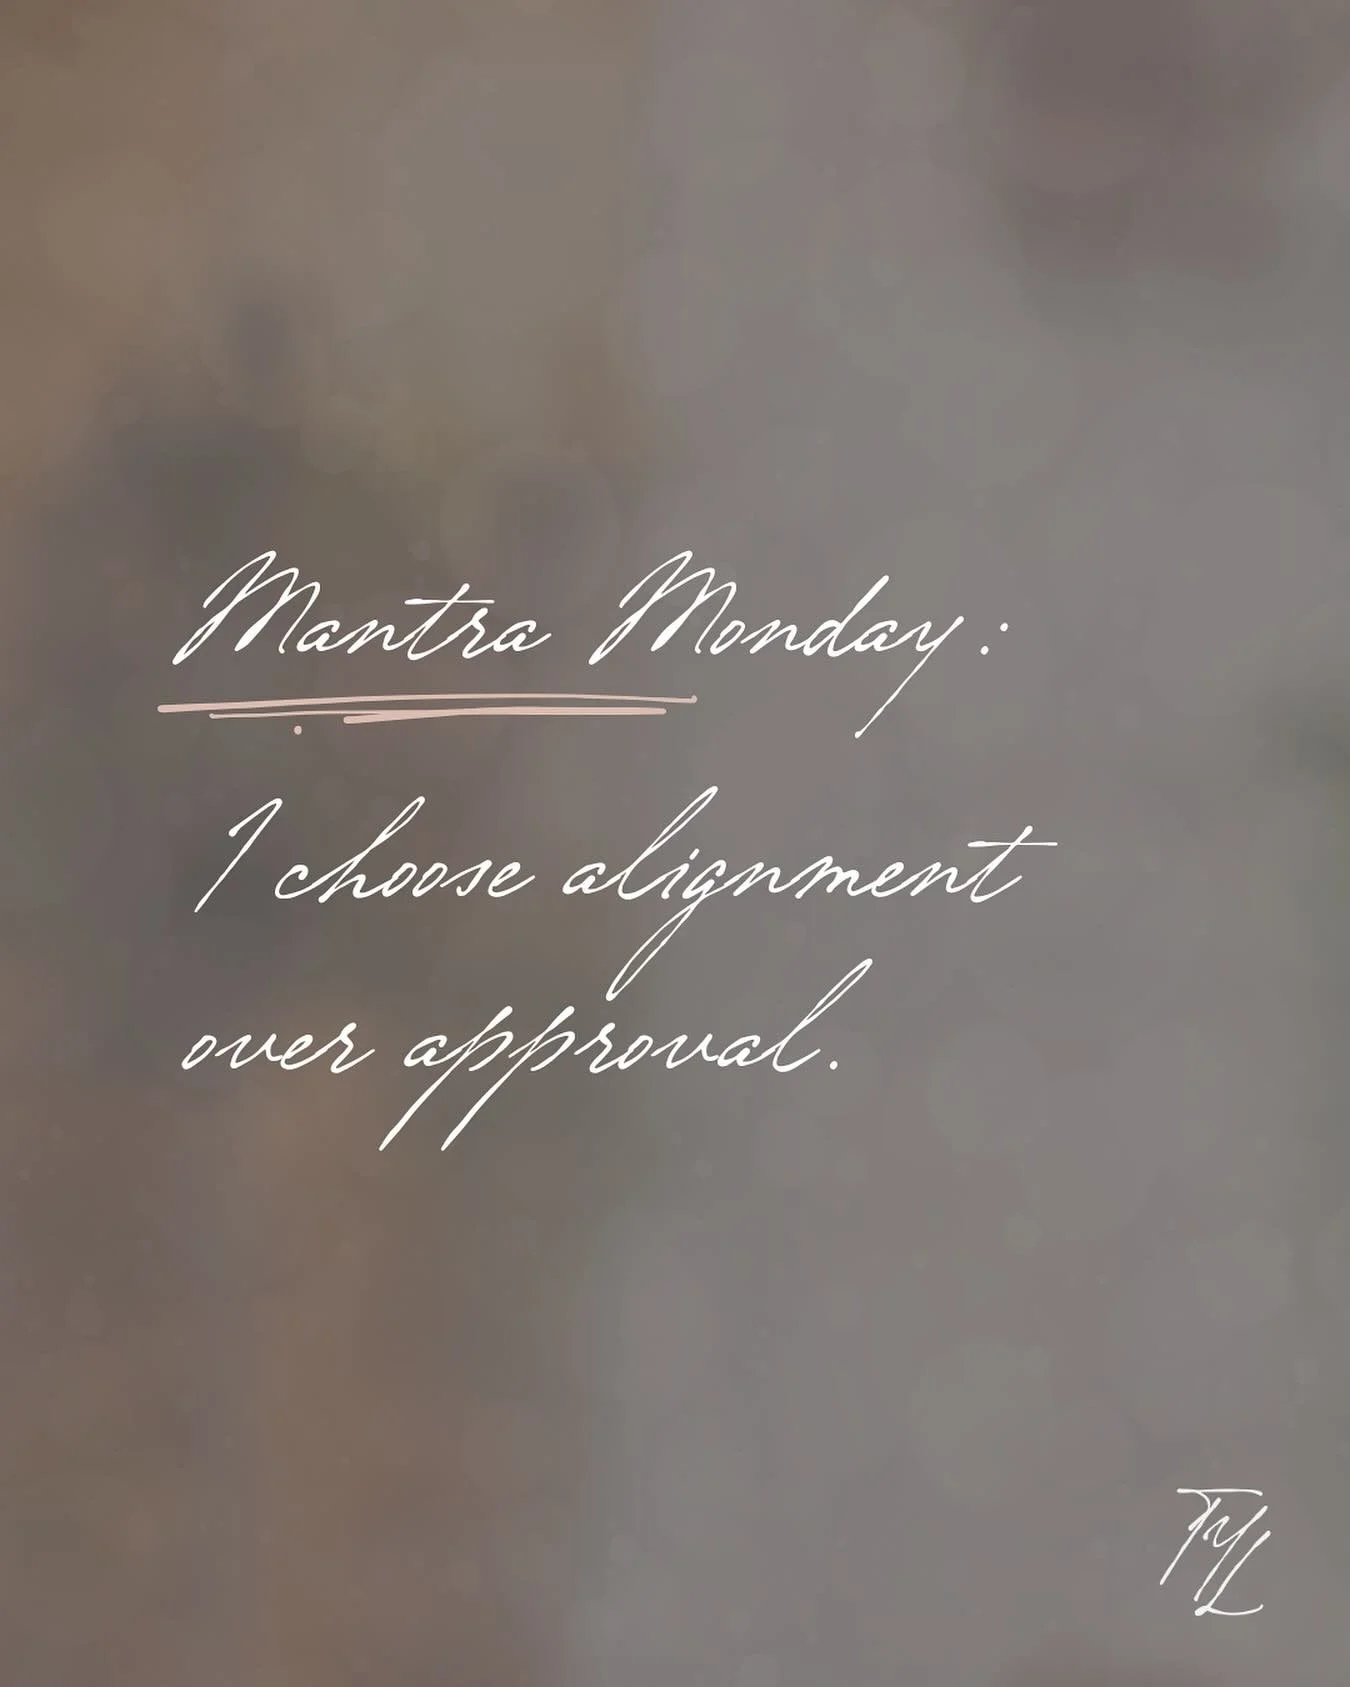 Mantra Monday:
I choose alignment
over approval.
TYL